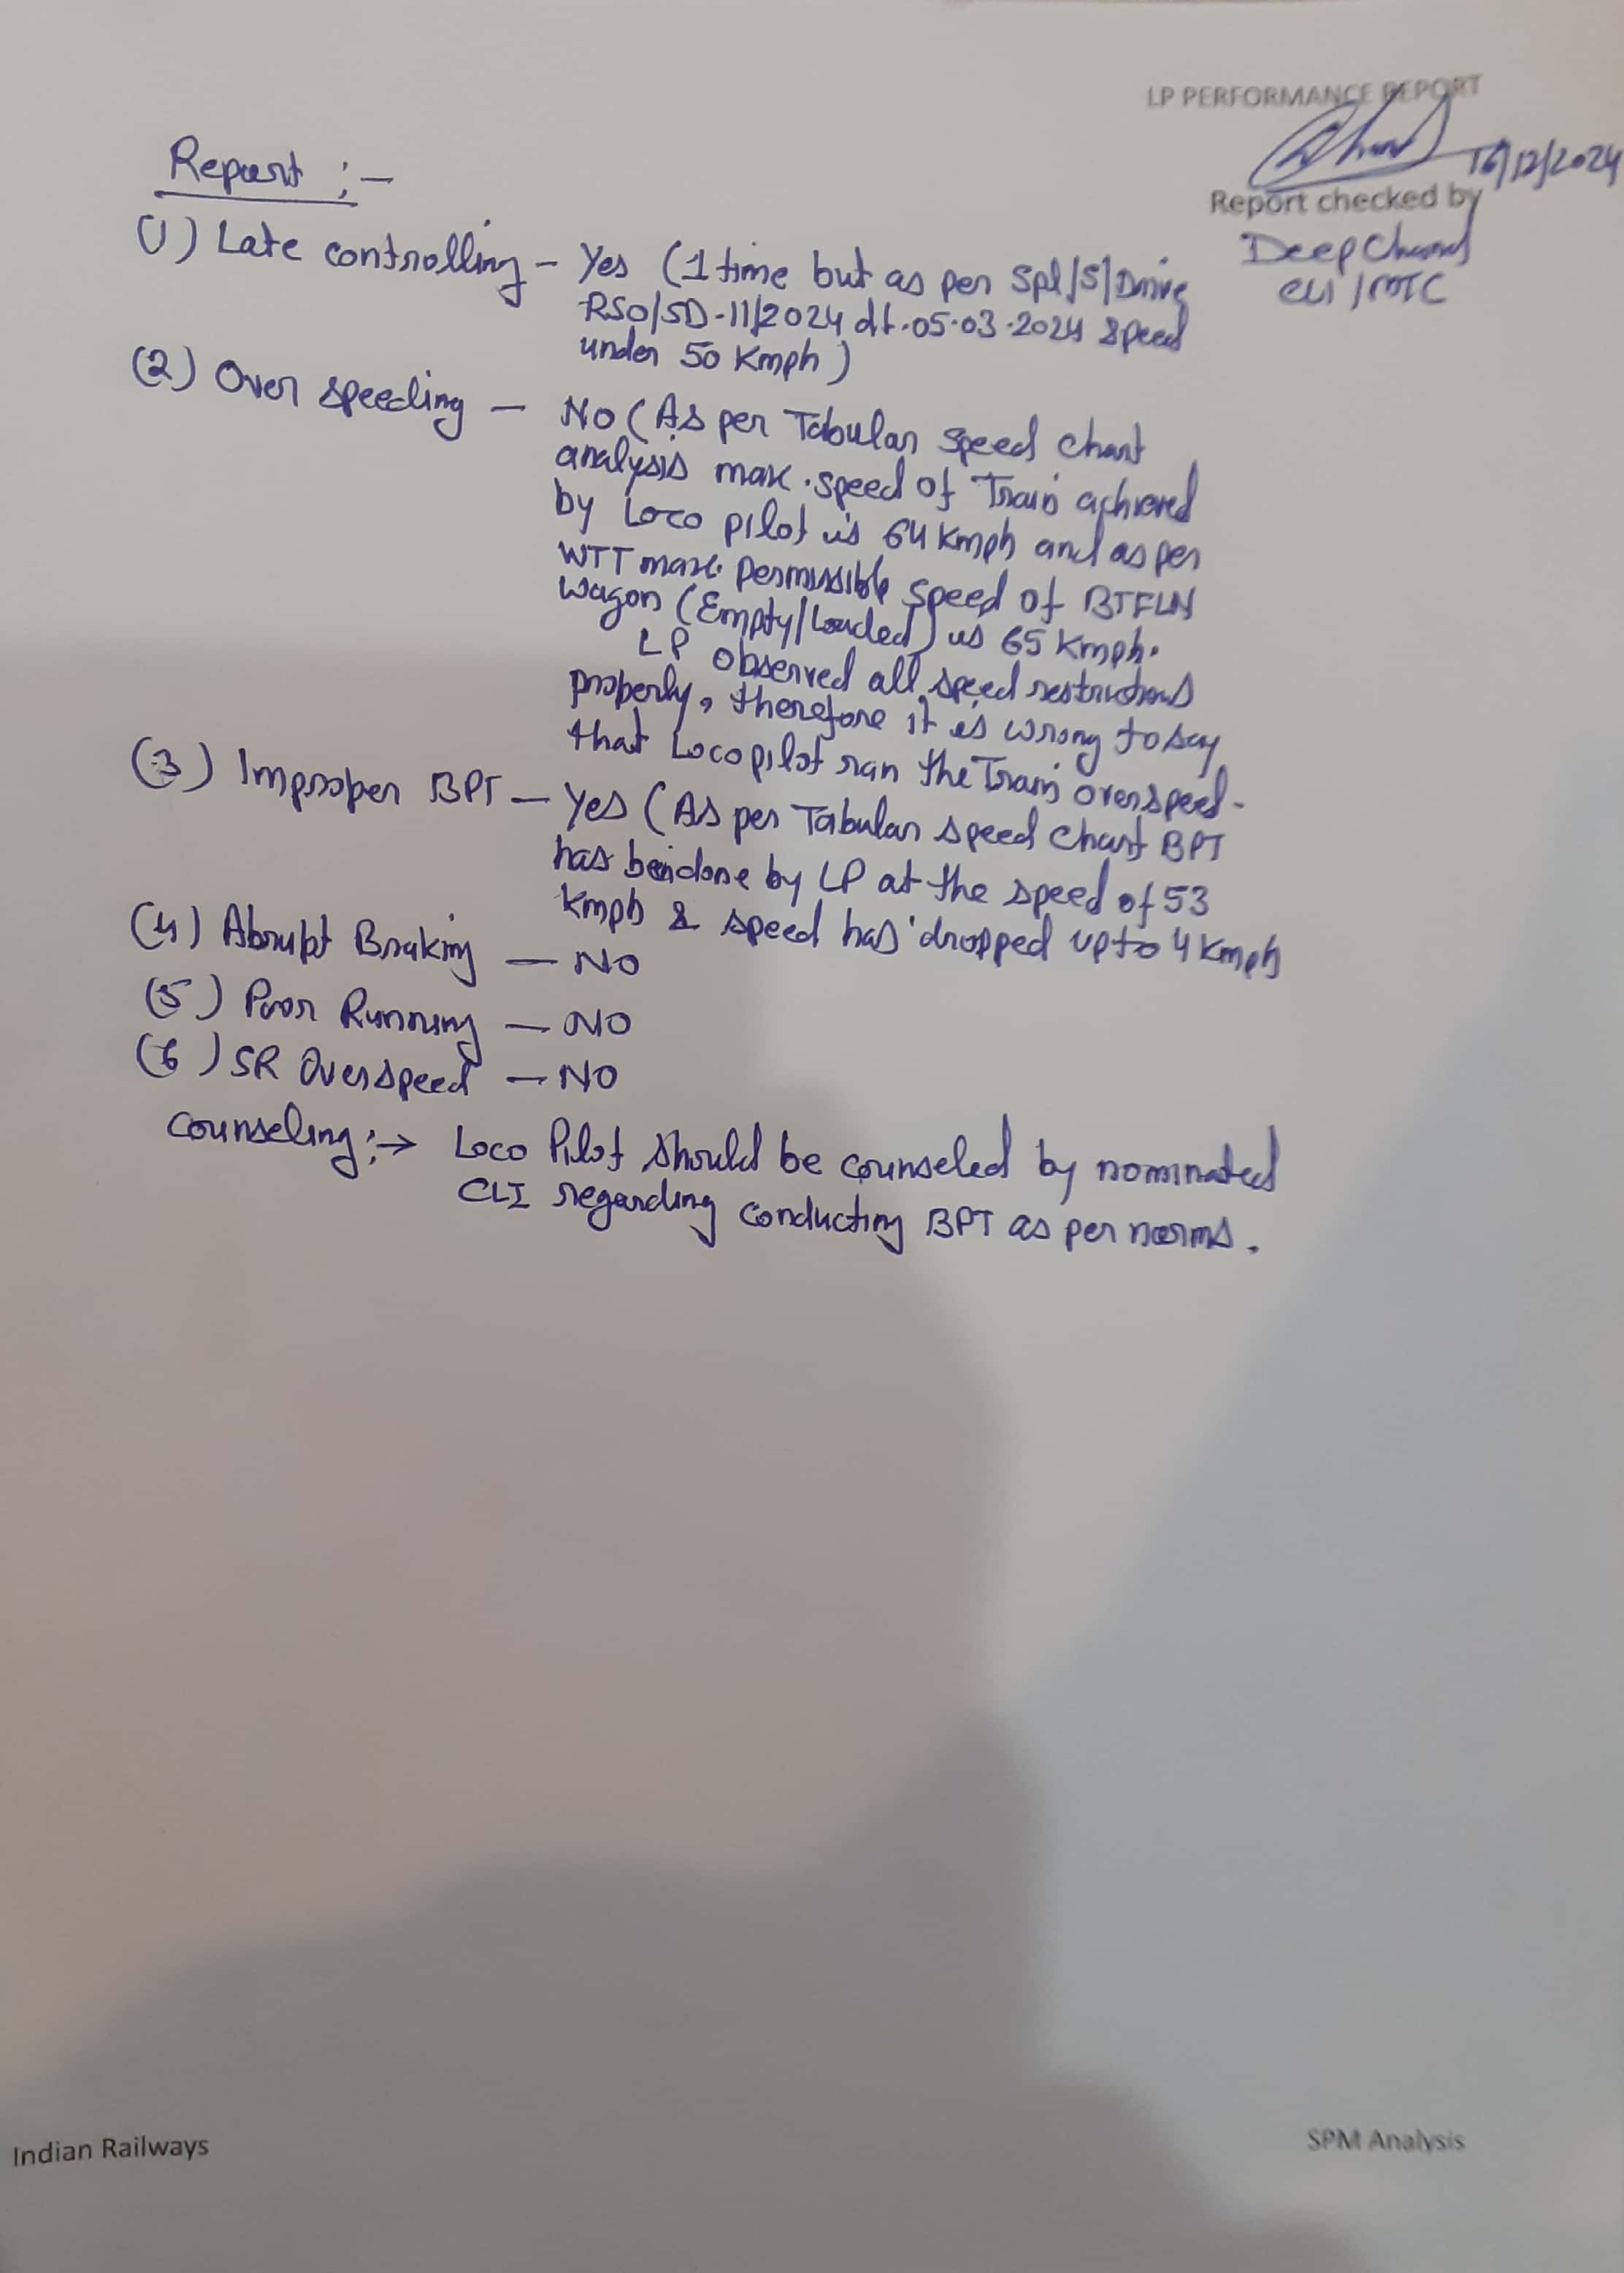 LP PERFORMANCE REPORT
16/12/2024
Report checked by
Deep Chand
CLI/MTC
Report :-
(1) Late controlling - Yes (1 time but as per Spl/S/Drive
RSO/SD-11/2024 dt.05.03.2024 speed
under 50 Kmph)
(2) Over speeding - NO (As per Tabular speed chart
analysis max. speed of Train achieved
by Loco pilot is 64 Kmph and as per
WTT max. permissible speed of BTFLN
wagon (Empty/Loaded) is 65 Kmph.
LP observed all speed restrictions
properly, therefore it is wrong to say
that Loco pilot ran the Train overspeed.
(3) Improper BPT - Yes (As per Tabular speed chart BPT
has been done by LP at the speed of 53
Kmph & speed has dropped upto 4 Kmph
(4) Abrupt Braking - NO
(5) Poor Running - NO
(6) SR Overspeed - NO
Counseling :→ Loco Pilot should be counseled by nominated
CLI regarding conducting BPT as per norms.
Indian Railways
SPM Analysis